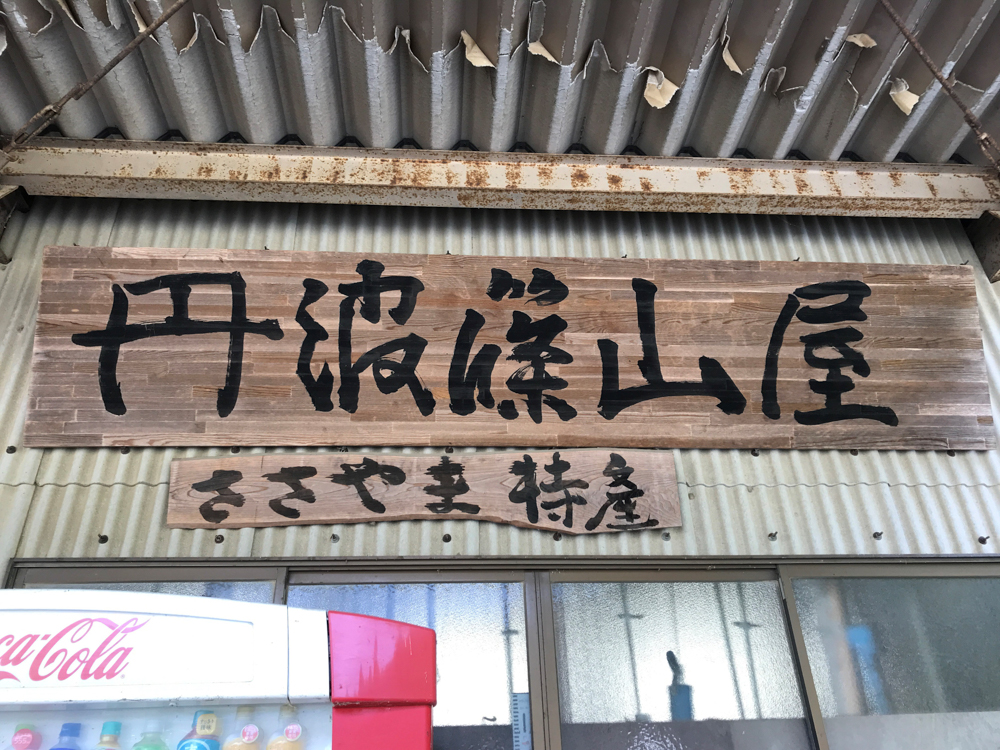 丹波篠山屋
ささやま特産
ca-Cola